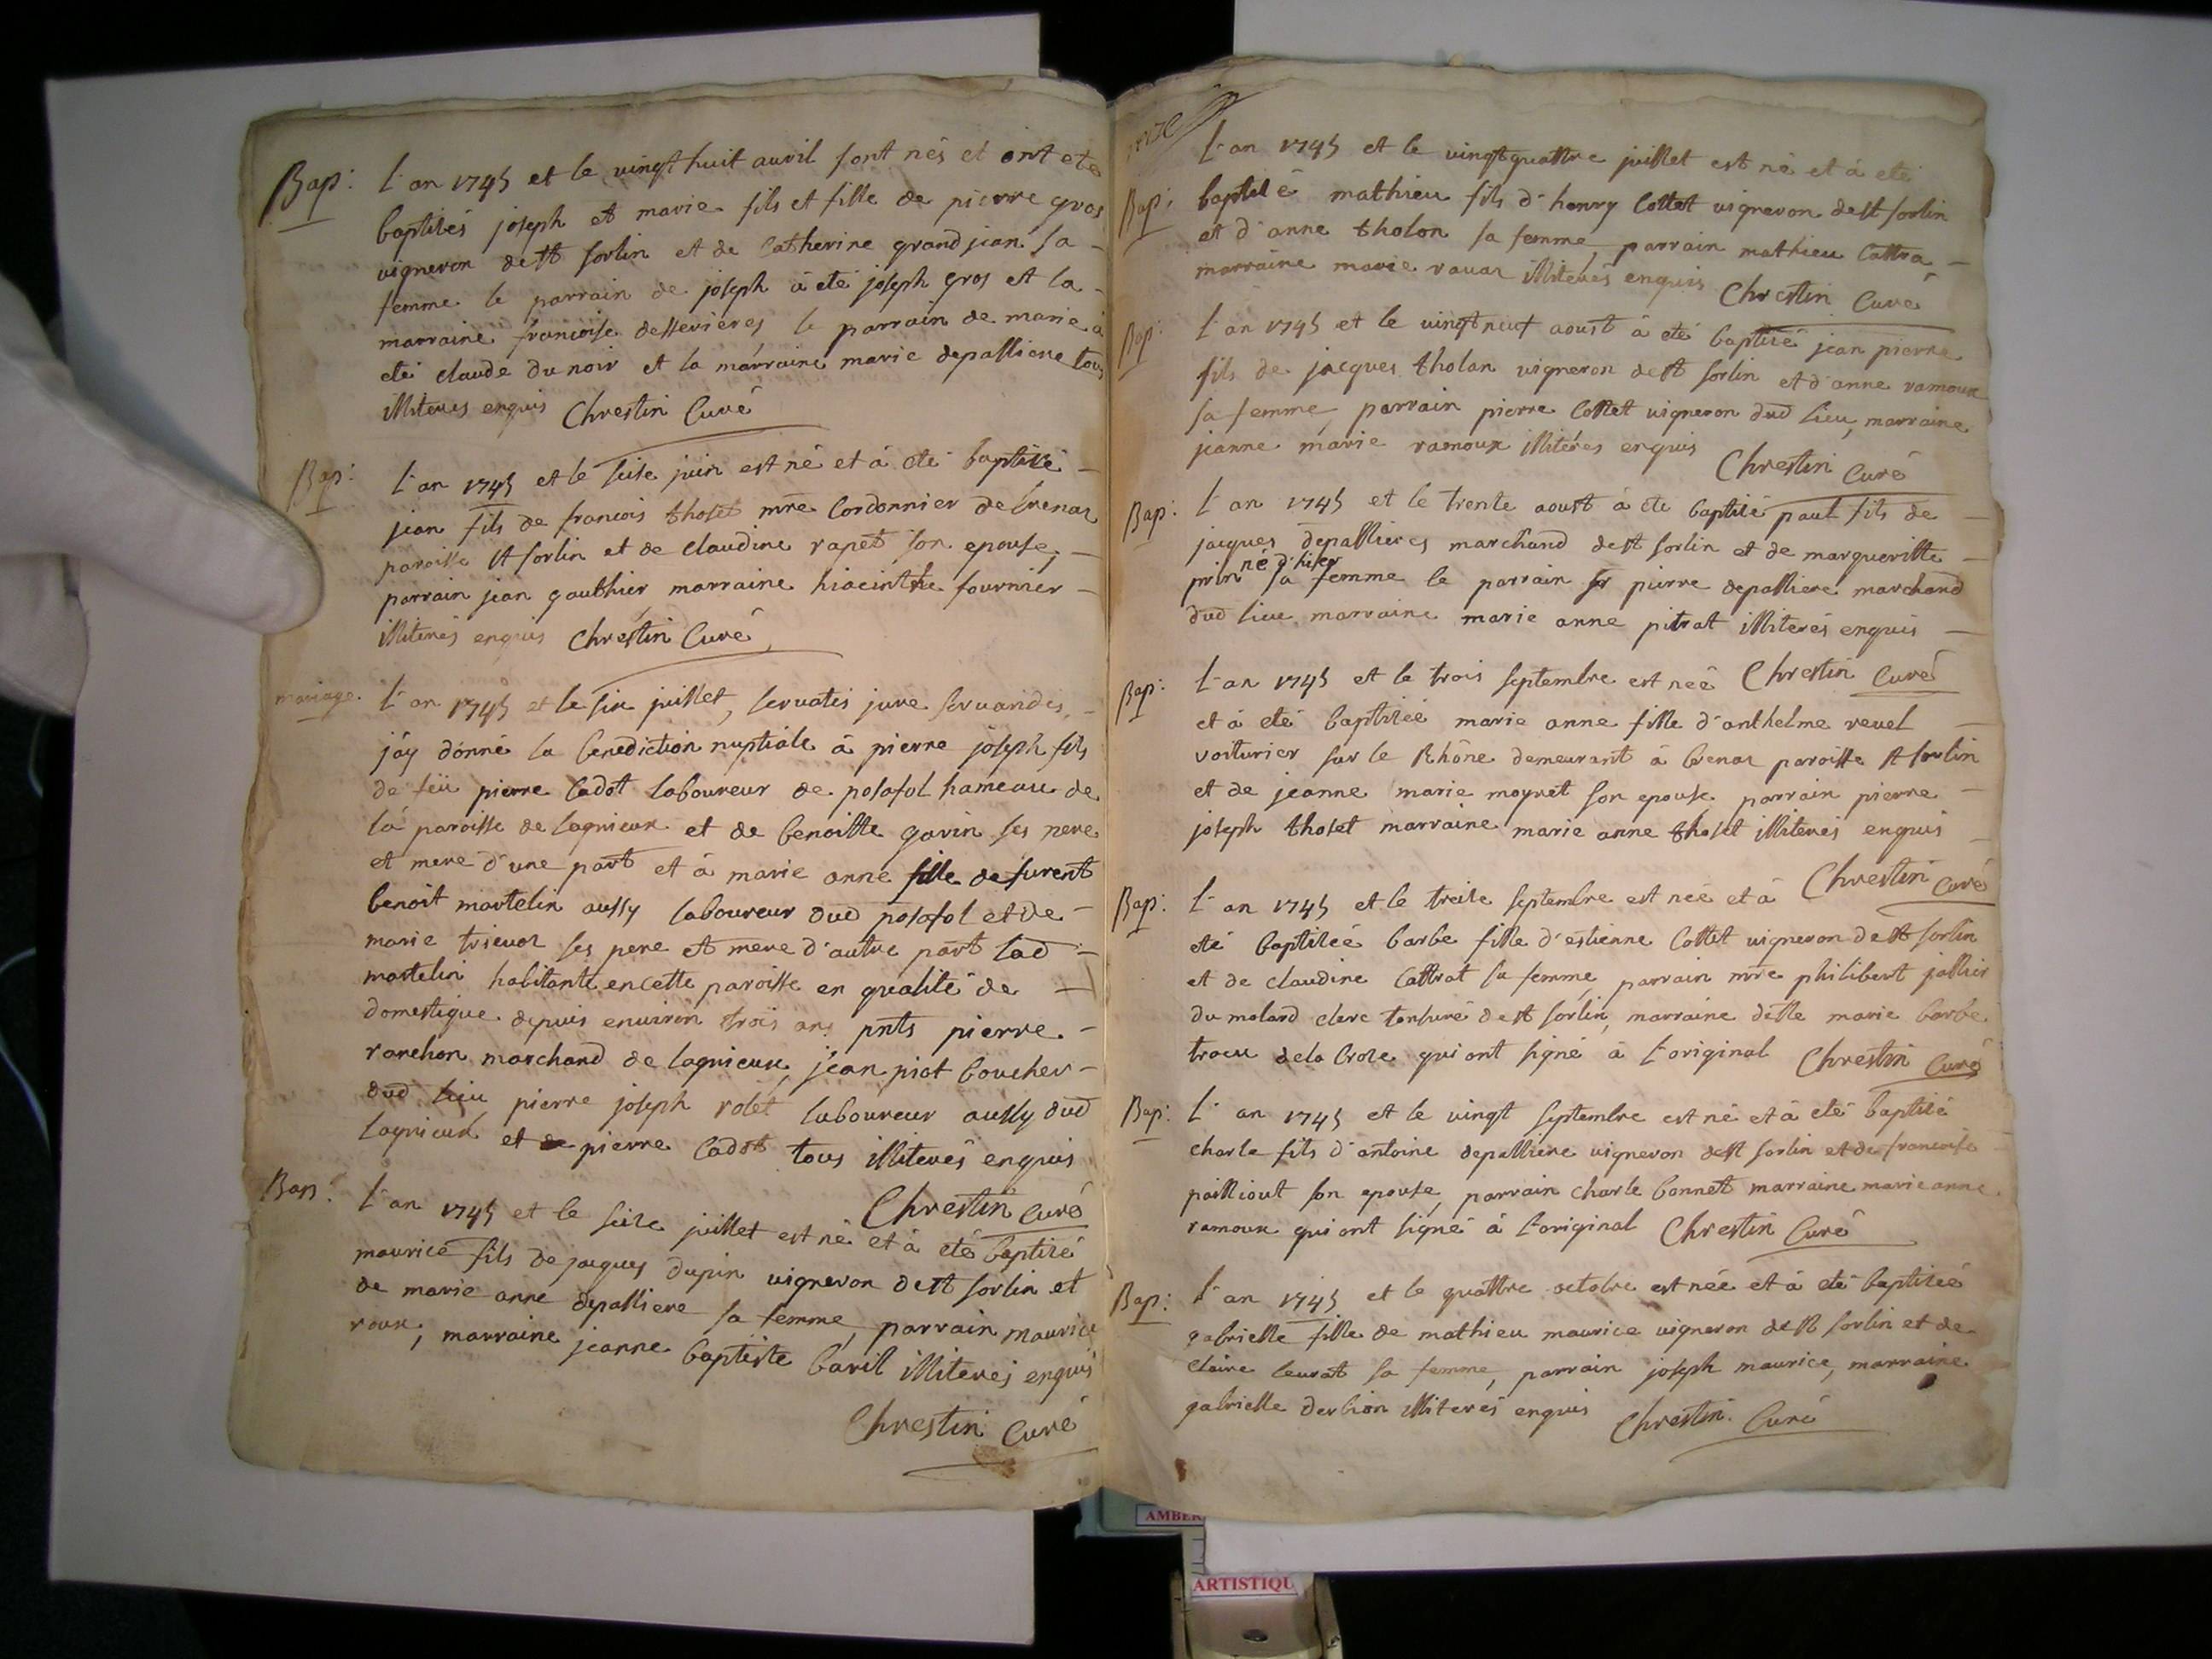 Bap: L'an 1745 et le vingt huit auril sont nés et ont eté
baptisés joseph et marie fils et fille de pierre gros
vigneron de St sorlin et de Catherine grandjean sa
femme le parrain de joseph à eté joseph gros et la
marraine francoise desserières le parrain de marie à
eté claude dunoir et la marraine marie depalliere tous
illiterés enquis Chrestin Curé
Bap: L'an 1745 et le seise juin est né et à eté baptisé
jean fils de francois thoset mre Cordonnier de brenaz
paroisse St sorlin et de claudine rapet son epouse,
parrain jean gauthier marraine hiacinthe fournier
illiterés enquis Chrestin Curé
mariage. L'an 1745 et le six juillet, servatis jure servandis,
j'ay donné la benediction nuptiale à pierre joseph fils
de feü pierre Cadot laboureur de posafol hameau de
la paroisse de lagnieux et de benoitte gavin ses pere
et mere d'une part et à marie anne fille de furent
benoit martelin aussy laboureur dud posafol et de
marie trievoz ses pere et mere d'autre part lad
martelin habitante en cette paroisse en qualité de
domestique depuis environ trois ans pnts pierre
ranchon marchand de lagnieux, jean piot boucher
dud lieu pierre joseph rolet laboureur aussy dud
lagnieux et pierre Cadot tous illiterés enquis
Chrestin curé
Bap: L'an 1745 et le seize juillet est né et à eté baptisé
maurice fils de jacques dupin vigneron de St sorlin et
de marie anne depalliere sa femme, parrain maurice
roux, marraine jeanne baptiste baril illiterés enquis
Chrestin Curé
L'an 1745 et le vingtquattre juillet est né et à eté
Bap: baptisé mathieu fils d'henry Cottet vigneron de St sorlin
et d'anne tholon sa femme, parrain mathieu Cattra,
marraine marie ravaz illiterés enquis Chrestin Curé
Bap: L'an 1745 et le vingtneuf aoust à eté baptisé jean pierre
fils de jacques tholon vigneron de St sorlin et d'anne ramoux
sa femme parrain pierre Cottet vigneron dud lieu, marraine
jeanne marie ramoux illiterés enquis Chrestin Curé
Bap: L'an 1745 et le trente aoust à eté baptisé paul fils de
jacques depallieres marchand de St sorlin et de margueritte
né d'hier
prin sa femme le parrain sr pierre depalliere marchand
dud lieu marraine marie anne pitrat illiterés enquis
Chrestin Curé
Bap: L'an 1745 et le trois septembre est neé
et à eté baptisée marie anne fille d'anthelme revel
voiturier sur le Rhône demeurant à brenaz paroisse St sorlin
et de jeanne marie moynet son epouse parrain pierre
joseph thoset marraine marie anne thoset illiterés enquis
Chrestin Curé
Bap: L'an 1745 et le treise septembre est neé et à
eté baptiseé barbe fille d'estienne Cottet vigneron de St sorlin
et de claudine Cattrat sa femme, parrain mre philibert jallier
du molard clerc tonsuré de St sorlin, marraine delle marie barbe
trocu dela Croze qui ont signé à l'original Chrestin Curé
Bap: L'an 1745 et le vingt septembre est né et à eté baptisé
charle fils d'antoine depalliere vigneron de St sorlin et de francoise
pailliout son epouse, parrain charle bonnet marraine marie anne
ramoux qui ont signé à l'original Chrestin Curé
Bap: L'an 1745 et le quattre octobre est née et à eté baptiseé
gabrielle fille de mathieu maurice vigneron de St sorlin et de
claire leurat sa femme, parrain joseph maurice, marraine
gabrielle derbion illiterés enquis Chrestin Curé
AMBER
ARTISTIQU